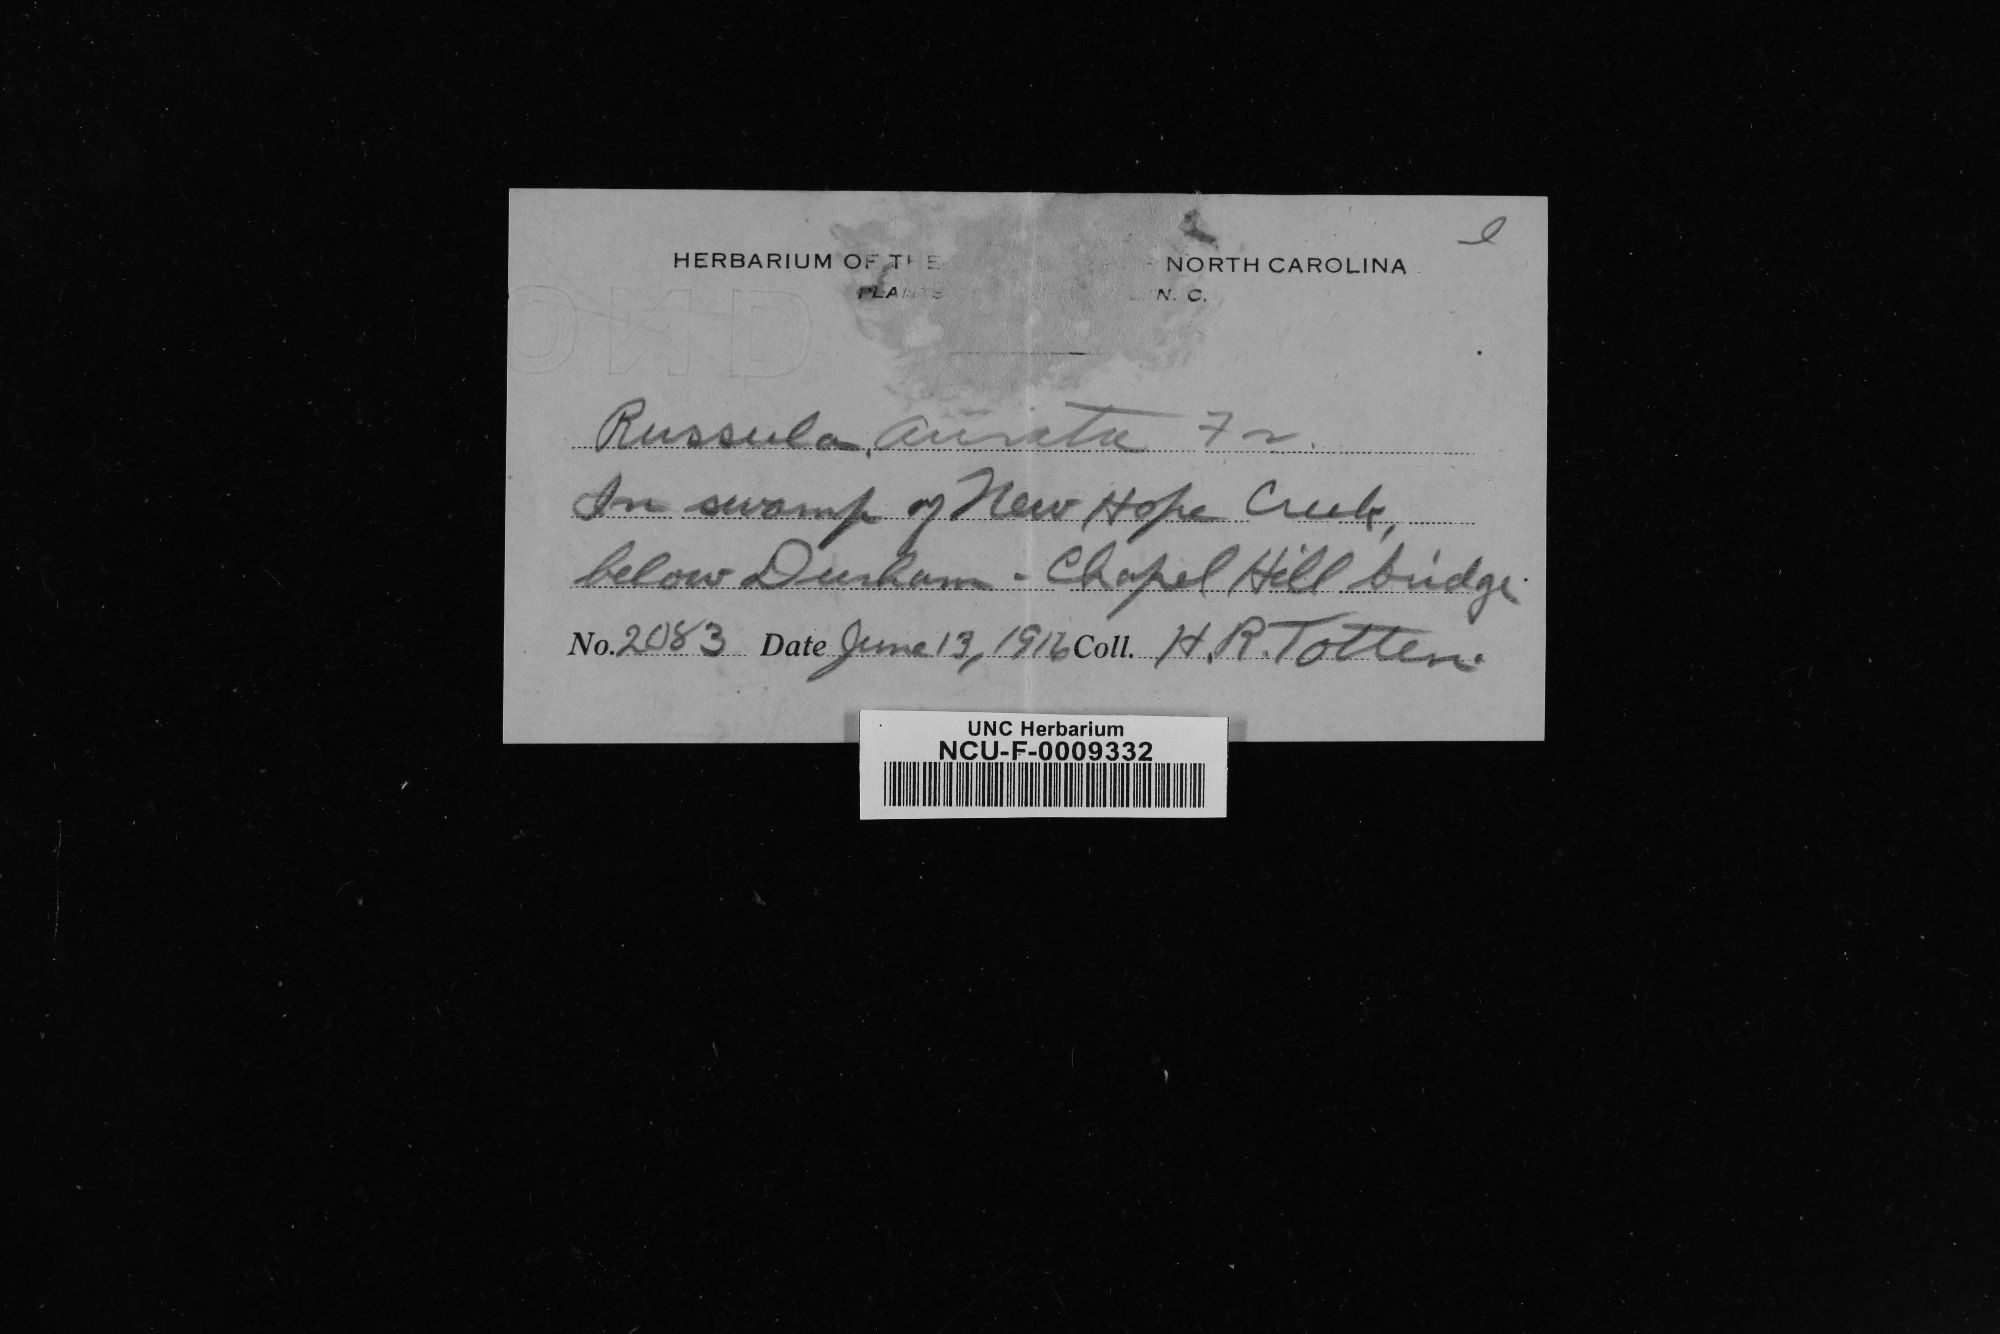 HERBARIUM OF THE NORTH CAROLINA
PLANTS N. C.
Russula aurata Fr.
In swamp of New Hope Creek,
below Durham - Chapel Hill bridge.
No. 2083 Date June 13, 1916 Coll. H. R. Totten.
UNC Herbarium
NCU-F-0009332